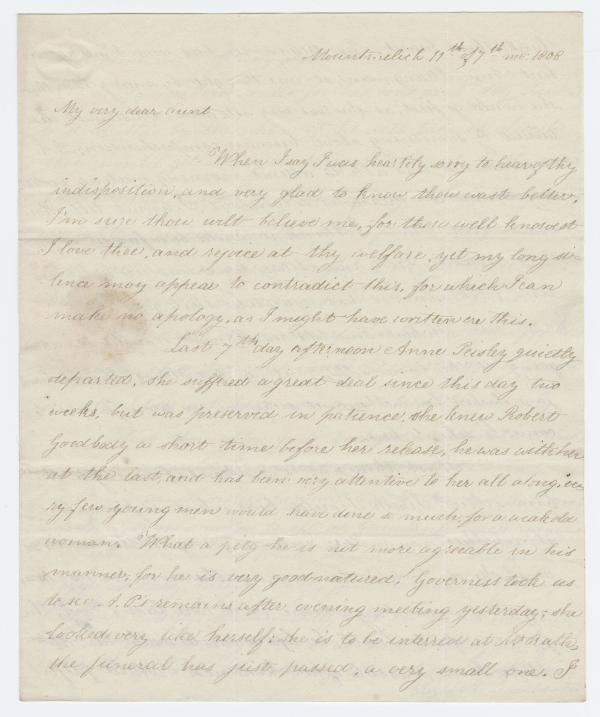 Mountmelick 11th of 7th mo: 1808
My very dear aunt
When I say I was heartily sorry to hear of thy
indisposition, and very glad to know thou wast better,
I'm sure thou wilt believe me, for thou well knowest
I love thee, and rejoice at thy welfare, yet my long si-
lence may appear to contradict this, for which I can
make no apology, as I might have written ere this.
Last 7th day afternoon Anne Peisley quietly
departed, she suffered a great deal since this day two
weeks, but was preserved in patience, she knew Robert
Goodbody a short time before her release, he was with her
at the last, and has been very attentive to her all along, ve-
ry few young men would have done so much, for a weak old
woman. What a pity he is not more agreeable in his
manner, for he is very goodnatured. Governess took us
to see A. P's remains after evening meeting yesterday; she
looked very like herself: she is to be interred at
the funeral has just passed, a very small one. I